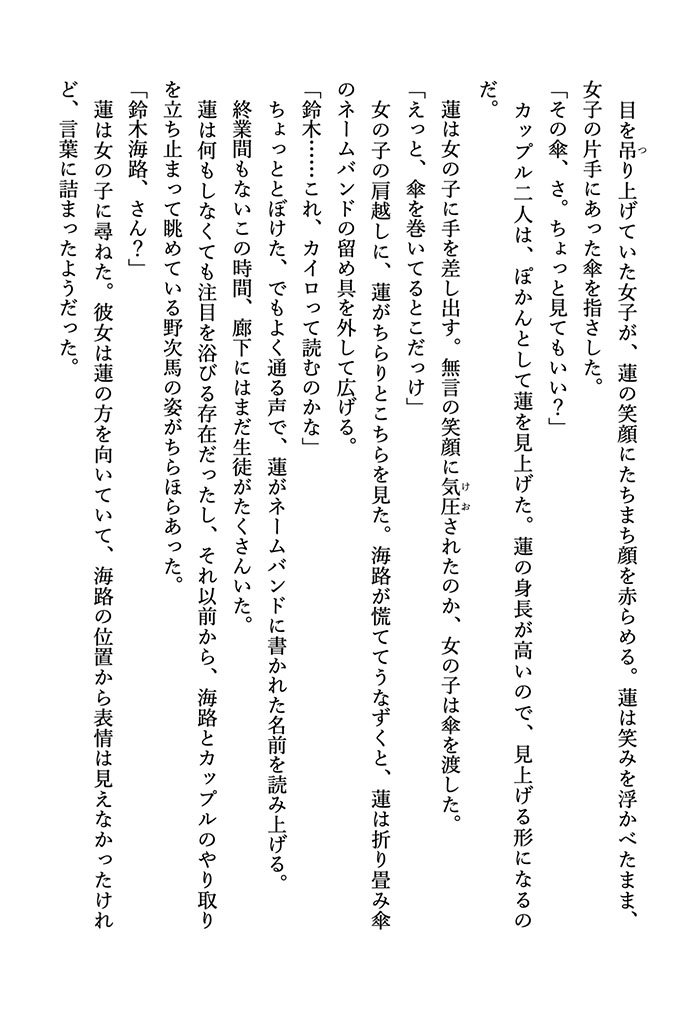 目を吊り上げていた女子が、蓮の笑顔にたちまち顔を赤らめる。蓮は笑みを浮かべたまま、
女子の片手にあった傘を指さした。
「その傘、さ。ちょっと見てもいい？」
　カップル二人は、ぽかんとして蓮を見上げた。蓮の身長が高いので、見上げる形になるの
だ。
　蓮は女の子に手を差し出す。無言の笑顔に気圧されたのか、女の子は傘を渡した。
「えっと、傘を巻いてるとこだっけ」
　女の子の肩越しに、蓮がちらりとこちらを見た。海路が慌ててうなずくと、蓮は折り畳み傘
のネームバンドの留め具を外して広げる。
「鈴木……これ、カイロって読むのかな」
　ちょっととぼけた、でもよく通る声で、蓮がネームバンドに書かれた名前を読み上げる。
　終業間もないこの時間、廊下にはまだ生徒がたくさんいた。
　蓮は何もしなくても注目を浴びる存在だったし、それ以前から、海路とカップルのやり取り
を立ち止まって眺めている野次馬の姿がちらほらあった。
「鈴木海路、さん？」
　蓮は女の子に尋ねた。彼女は蓮の方を向いていて、海路の位置から表情は見えなかったけれ
ど、言葉に詰まったようだった。